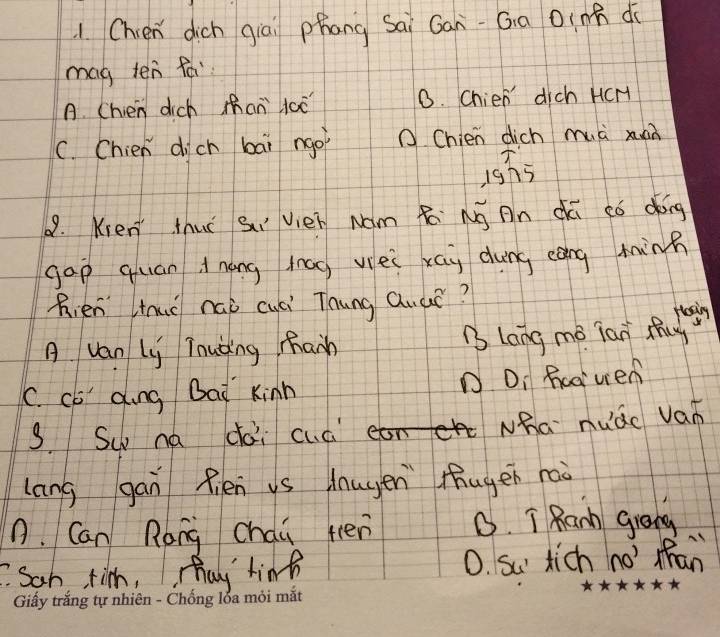 1. Chiến dịch giải phóng Sài Gòn - Gia Định đc
mang tên là:
A. Chiến dịch thần tốc B. Chiến dịch HCM
C. Chiến dịch bất ngờ D Chiến dịch mùa xuân
1975
2. Kiến thúc sư Việt Nam là Ng An đã có đóng
góp quan trong việc xây dựng công trình
kiến trúc nào của Trung Quốc?
A Vạn Lý Trường Thành B Lăng mộ Tần Thủy Hoàng
C. cố cung Bắc Kinh D Di hoà viên
3. Sự ra đời của Nhà nước Văn
Lang gắn liền vs truyền thuyết nào
A. Con Rồng cháu tiên B. Thánh gióng
C. Sơn tinh, thủy tinh D. Sự tích nỏ thần
Giấy trắng tự nhiên - Chống lóa mỏi mắt